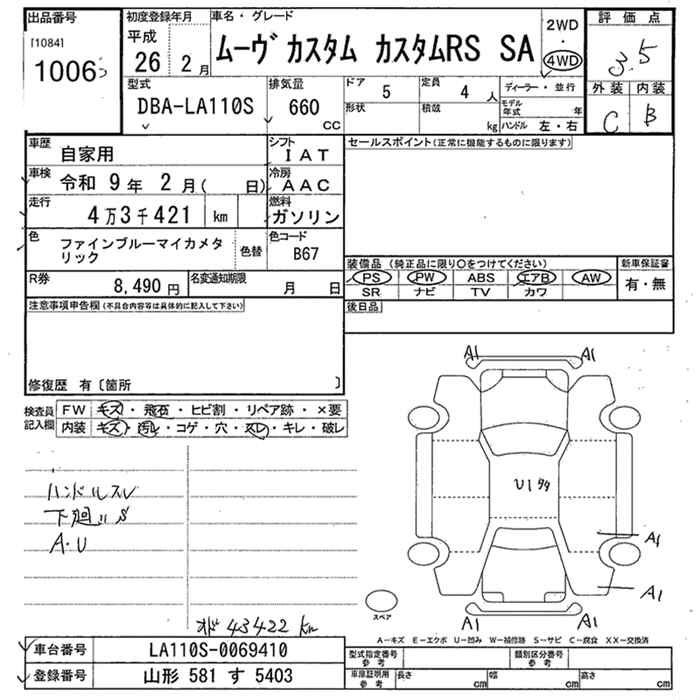 出品番号
[1084]
1006
初度登録年月
平成
26 2月
車名・グレード
ムーヴ カスタム カスタムRS SA
2WD
・
4WD
評価点
3.5
外装 内装
C B
型式
DBA-LA110S
排気量
660
cc
ドア
5
定員
4 人
形状
積載
kg
ディーラー・並行
モデル年式 年
ハンドル 左・右
車歴
自家用
シフト
IAT
車検
令和 9年 2月( 日)
冷房
AAC
走行
4万3千421 km
燃料
ガソリン
色
ファインブルーマイカメタリック
色替
色コード
B67
R券
8,490円
名変通知期限
月 日
セールスポイント(正常に機能するものに限ります)
装備品 (純正品に限り○をつけてください)
PS PW ABS エアB AW
SR ナビ TV カワ
新車保証書
有・無
後日品
注意事項申告欄(不具合内容等は具体的に記入して下さい)
修復歴 有〔箇所 〕
検査員記入欄
FW キズ・飛石・ヒビ割・リペア跡・×要
内装 キズ・汚レ・コゲ・穴・スレ・キレ・破レ
ハンドルスレ
下廻りS
A・U
43422 km
A1 A1
U1タタ
A1
A1
A1 A1
スペア
A-キズ E-エクボ U-凹み W-補修跡 S-サビ C-腐食 XX-交換済
車台番号 LA110S-0069410
登録番号 山形 581 す 5403
型式指定番号 参考
類別区分番号 参考
車庫証明用 参考
長さ cm
幅 cm
高さ cm